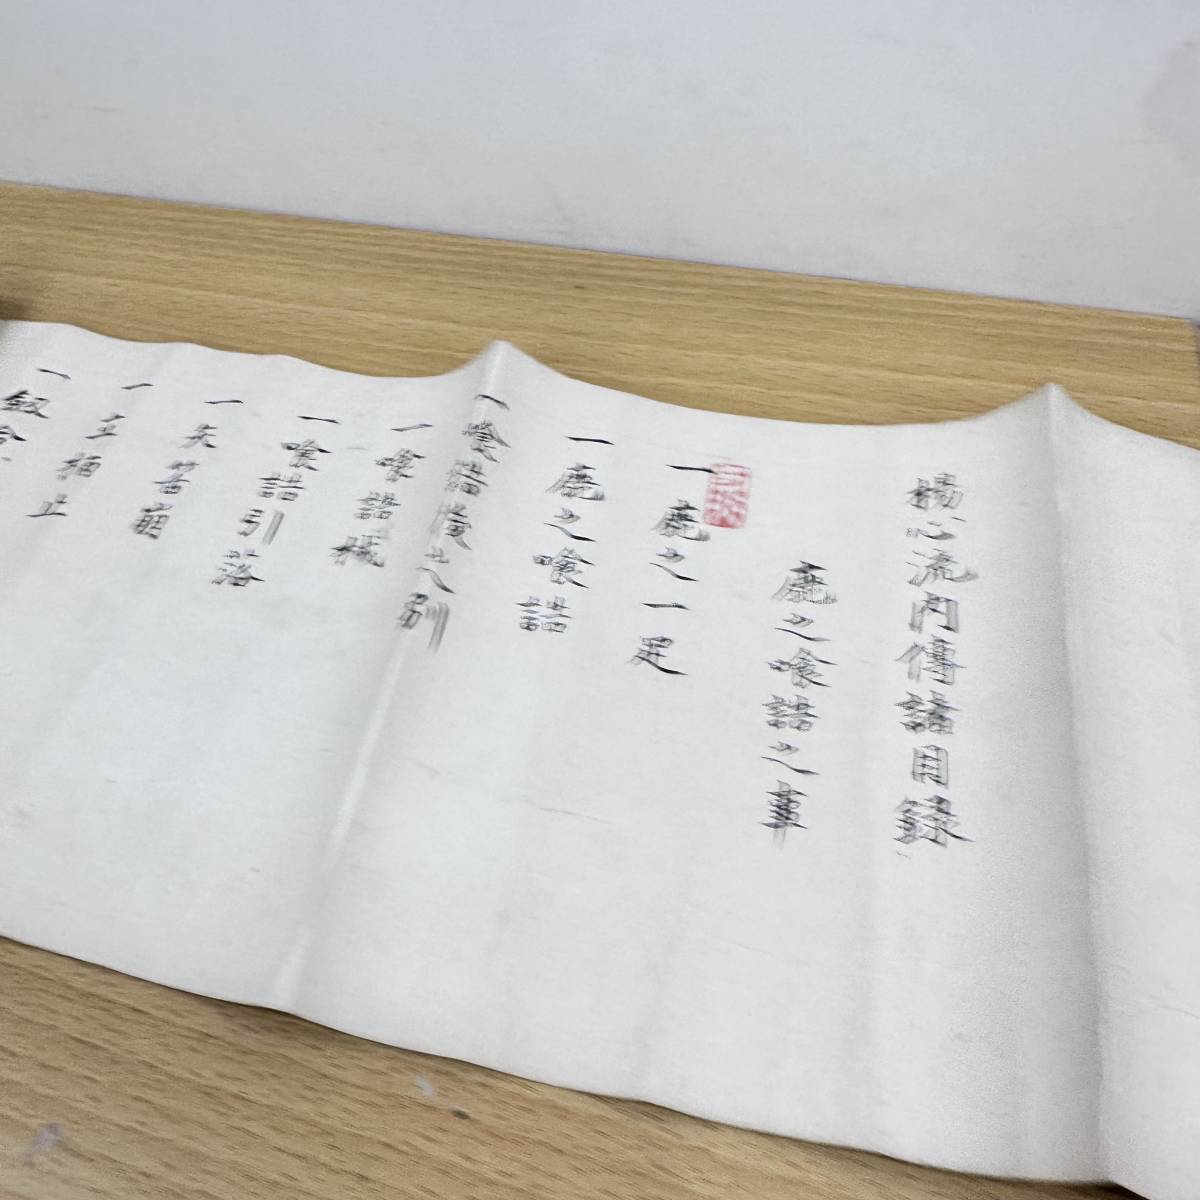 楊心流內傳諸目錄
鹿之喰詰之事
一鹿之一足
一鹿之喰詰
一喰詰後之別
一喰詰
一喰詰引落
一矢筈崩
一立